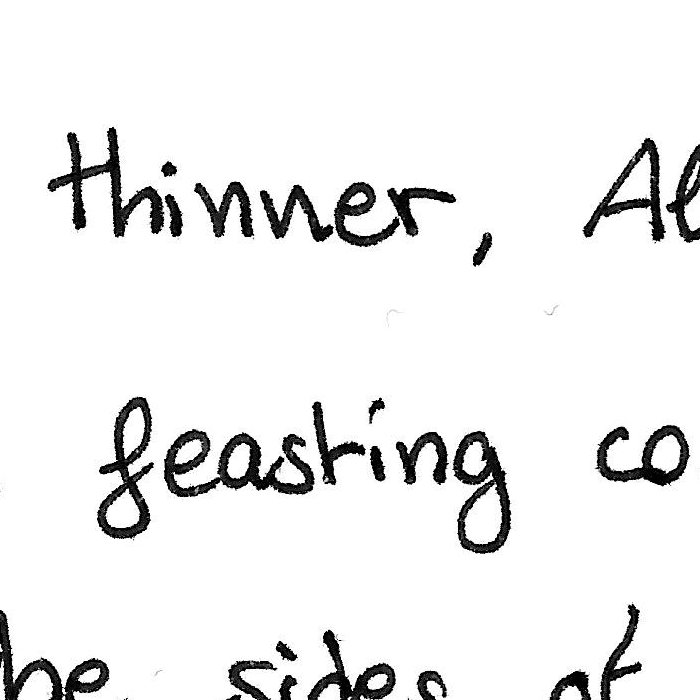 thinner, Al
feasting co
he sides of